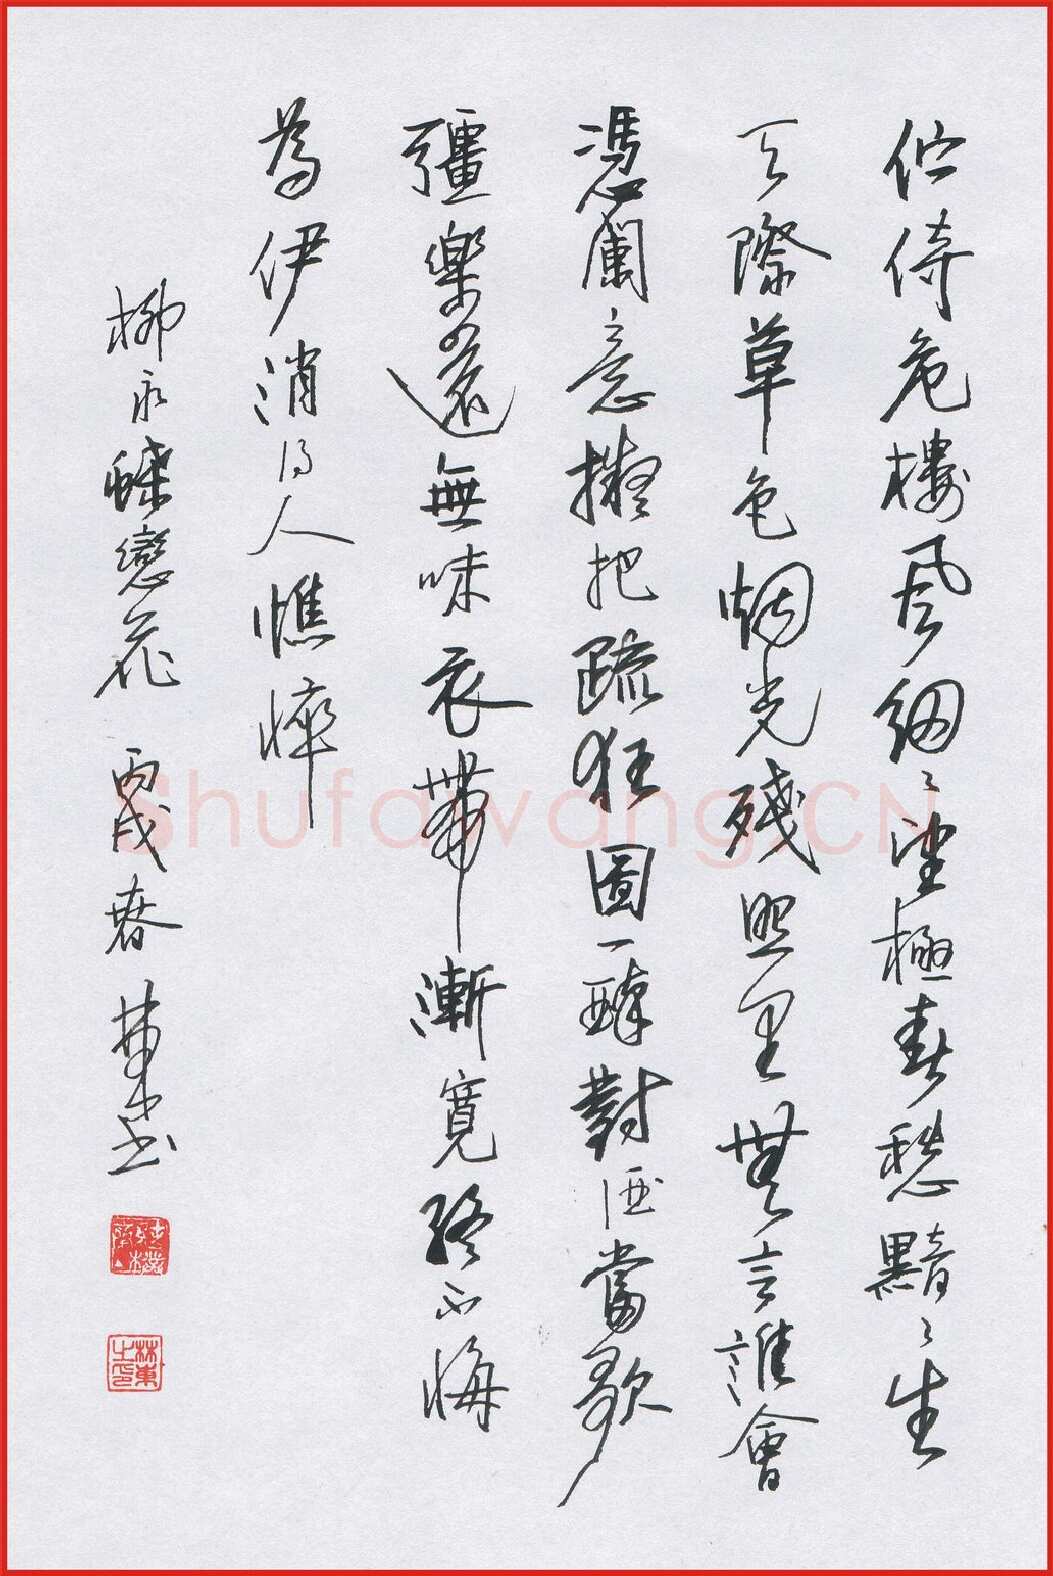 伫倚危樓風細ミ望極春愁黯ミ生
天際草色烟光殘照里無言誰會
憑闌意擬把疏狂圖一醉對酒當歌
彊樂還無味衣帶漸寬終不悔
為伊消得人憔悴
柳永蝶戀花 丙戌春 林東书
林東之印
Shufawang.CN